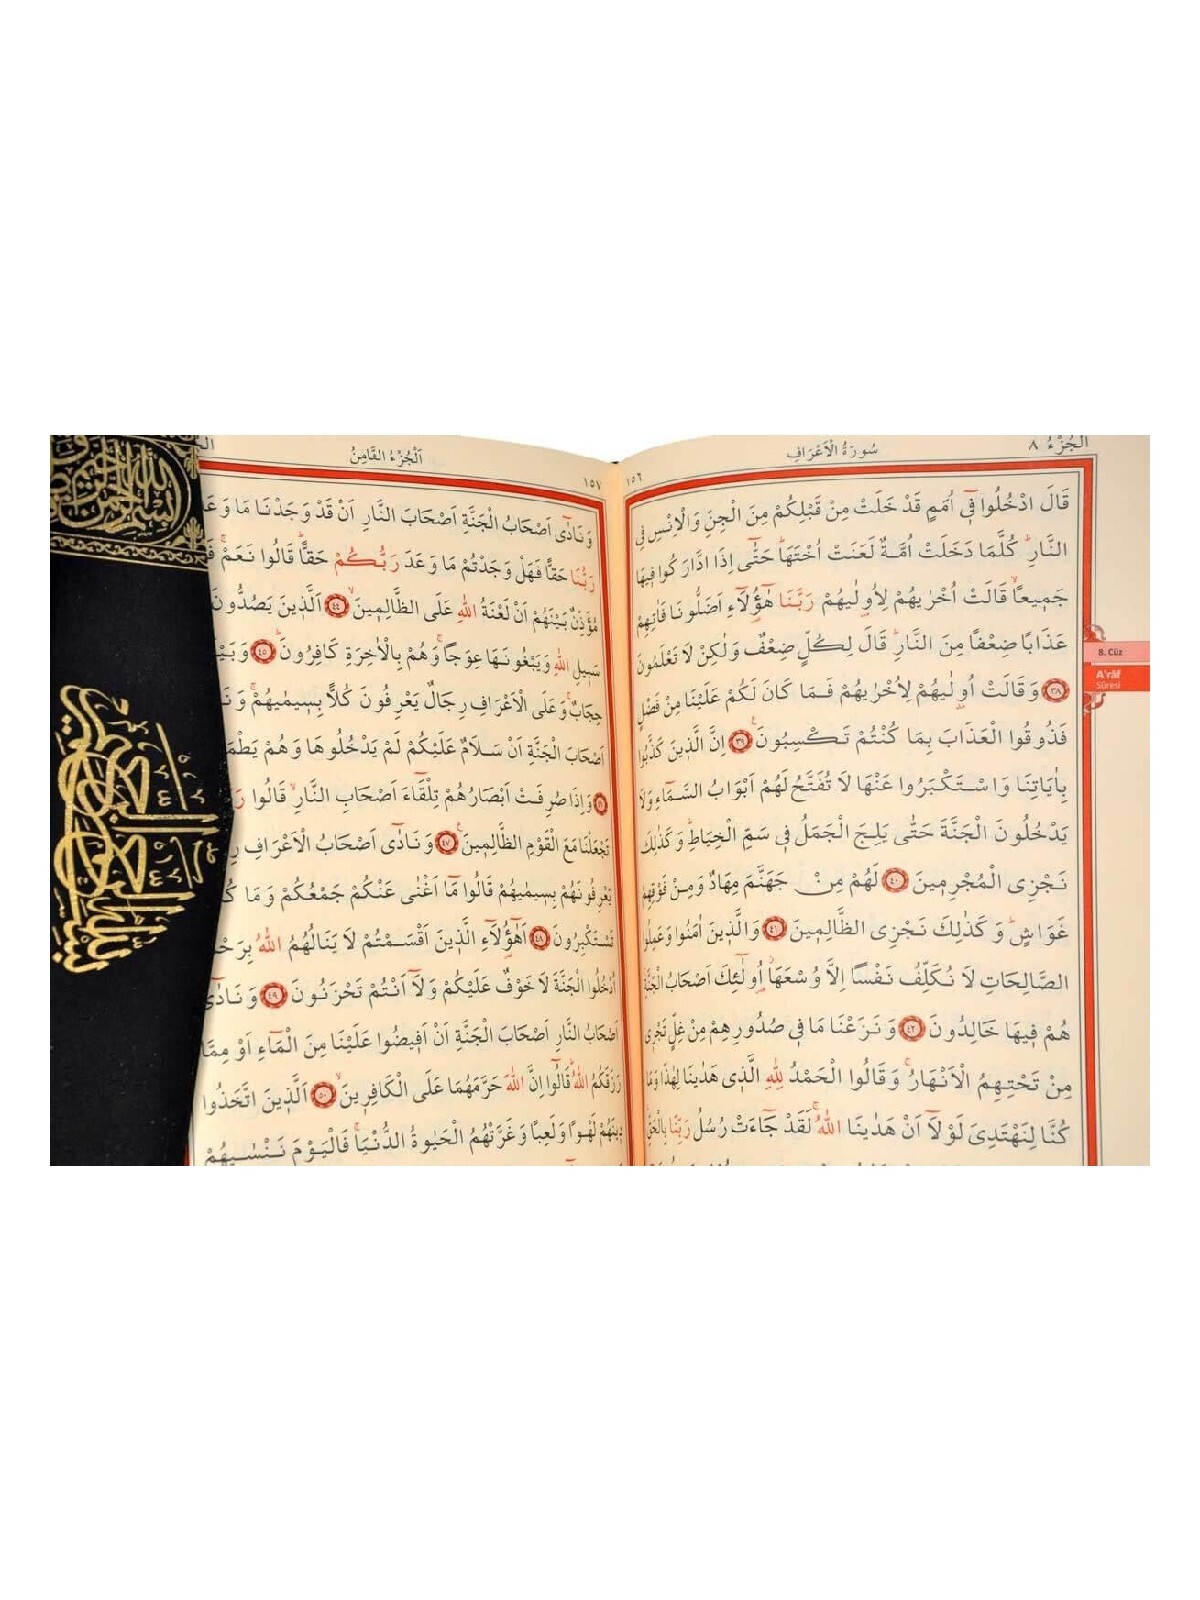 الجزء ٨
سورة الأعراف
١٥٦
قَالَ ادْخُلُوا فِي أُمَمٍ قَدْ خَلَتْ مِنْ قَبْلِكُمْ مِنَ الْجِنِّ وَالْإِنْسِ فِي
النَّارِ كُلَّمَا دَخَلَتْ أُمَّةٌ لَعَنَتْ أُخْتَهَا حَتَّى إِذَا ادَّارَكُوا فِيهَا
جَمِيعًا قَالَتْ أُخْرٰيهُمْ لِأُولٰيهُمْ رَبَّنَا هٰؤُلَاءِ أَضَلُّونَا فَاٰتِهِمْ
عَذَابًا ضِعْفًا مِنَ النَّارِ قَالَ لِكُلٍّ ضِعْفٌ وَلٰكِنْ لَا تَعْلَمُونَ
٣٨ وَقَالَتْ أُولٰيهُمْ لِأُخْرٰيهُمْ فَمَا كَانَ لَكُمْ عَلَيْنَا مِنْ فَضْلٍ
فَذُوقُوا الْعَذَابَ بِمَا كُنْتُمْ تَكْسِبُونَ ٣٩ إِنَّ الَّذِينَ كَذَّبُوا
بِاٰيَاتِنَا وَاسْتَكْبَرُوا عَنْهَا لَا تُفَتَّحُ لَهُمْ أَبْوَابُ السَّمَاءِ وَلَا
يَدْخُلُونَ الْجَنَّةَ حَتَّى يَلِجَ الْجَمَلُ فِي سَمِّ الْخِيَاطِ وَكَذٰلِكَ
نَجْزِي الْمُجْرِمِينَ ٤٠ لَهُمْ مِنْ جَهَنَّمَ مِهَادٌ وَمِنْ فَوْقِهِمْ
غَوَاشٍ وَكَذٰلِكَ نَجْزِي الظَّالِمِينَ ٤١ وَالَّذِينَ اٰمَنُوا وَعَمِلُوا
الصَّالِحَاتِ لَا نُكَلِّفُ نَفْسًا إِلَّا وُسْعَهَا أُولٰئِكَ أَصْحَابُ الْجَنَّةِ
هُمْ فِيهَا خَالِدُونَ ٤٢ وَنَزَعْنَا مَا فِي صُدُورِهِمْ مِنْ غِلٍّ تَجْرِي
مِنْ تَحْتِهِمُ الْأَنْهَارُ وَقَالُوا الْحَمْدُ لِلّٰهِ الَّذِي هَدٰينَا لِهٰذَا وَمَا
كُنَّا لِنَهْتَدِيَ لَوْلَا أَنْ هَدٰينَا اللّٰهُ لَقَدْ جَاءَتْ رُسُلُ رَبِّنَا بِالْحَقِّ
8. Cüz
A'râf
Sûresi
الجزء الثامن
١٥٧
وَنَادٰى أَصْحَابُ الْجَنَّةِ أَصْحَابَ النَّارِ أَنْ قَدْ وَجَدْنَا مَا
رَبُّنَا حَقًّا فَهَلْ وَجَدْتُمْ مَا وَعَدَ رَبُّكُمْ حَقًّا قَالُوا نَعَمْ
مُؤَذِّنٌ بَيْنَهُمْ أَنْ لَعْنَةُ اللّٰهِ عَلَى الظَّالِمِينَ ٤٤ اَلَّذِينَ يَصُدُّونَ
سَبِيلِ اللّٰهِ وَيَبْغُونَهَا عِوَجًا وَهُمْ بِالْاٰخِرَةِ كَافِرُونَ ٤٥
حِجَابٌ وَعَلَى الْأَعْرَافِ رِجَالٌ يَعْرِفُونَ كُلًّا بِسِيمٰيهُمْ
أَصْحَابَ الْجَنَّةِ أَنْ سَلَامٌ عَلَيْكُمْ لَمْ يَدْخُلُوهَا وَهُمْ
وَإِذَا صُرِفَتْ أَبْصَارُهُمْ تِلْقَاءَ أَصْحَابِ النَّارِ قَالُوا
تَجْعَلْنَا مَعَ الْقَوْمِ الظَّالِمِينَ ٤٧ وَنَادٰى أَصْحَابُ الْأَعْرَافِ
يَعْرِفُونَهُمْ بِسِيمٰيهُمْ قَالُوا مَا أَغْنٰى عَنْكُمْ جَمْعُكُمْ وَمَا
تَسْتَكْبِرُونَ ٤٨ أَهٰؤُلَاءِ الَّذِينَ أَقْسَمْتُمْ لَا يَنَالُهُمُ اللّٰهُ
أُدْخُلُوا الْجَنَّةَ لَا خَوْفٌ عَلَيْكُمْ وَلَا أَنْتُمْ تَحْزَنُونَ ٤٩ وَنَادٰى
أَصْحَابُ النَّارِ أَصْحَابَ الْجَنَّةِ أَنْ أَفِيضُوا عَلَيْنَا مِنَ الْمَاءِ أَوْ مِمَّا
رَزَقَكُمُ اللّٰهُ قَالُوا إِنَّ اللّٰهَ حَرَّمَهُمَا عَلَى الْكَافِرِينَ ٥٠ اَلَّذِينَ اتَّخَذُوا
دِينَهُمْ لَهْوًا وَلَعِبًا وَغَرَّتْهُمُ الْحَيٰوةُ الدُّنْيَا فَالْيَوْمَ نَنْسٰيهُمْ